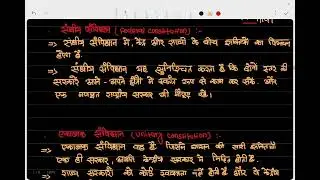 संघीय संविधान (Federal Constitution) :-
⇒ संघीय संविधान में, केंद्र और राज्यों के बीच शक्तियों का विभाजन
होता है.
⇒ संघीय संविधान यह सुनिश्चित करता है कि दोनों स्तर की
सरकारें अपने-अपने क्षेत्रों में स्वतंत्र रूप से काम कर सकें और
एक राष्ट्रीय सरकार की
एकात्मक संविधान (Unitary Constitution) :-
⇒ एकात्मक संविधान वह है जिसमें शासन की सभी शक्तियाँ
एक ही सरकार, केन्द्रीय सरकार में निहित होती है.
⇒ राज्य सरकारों को कोई स्वतंत्रता नहीं होती है और वे केन्द्रीय